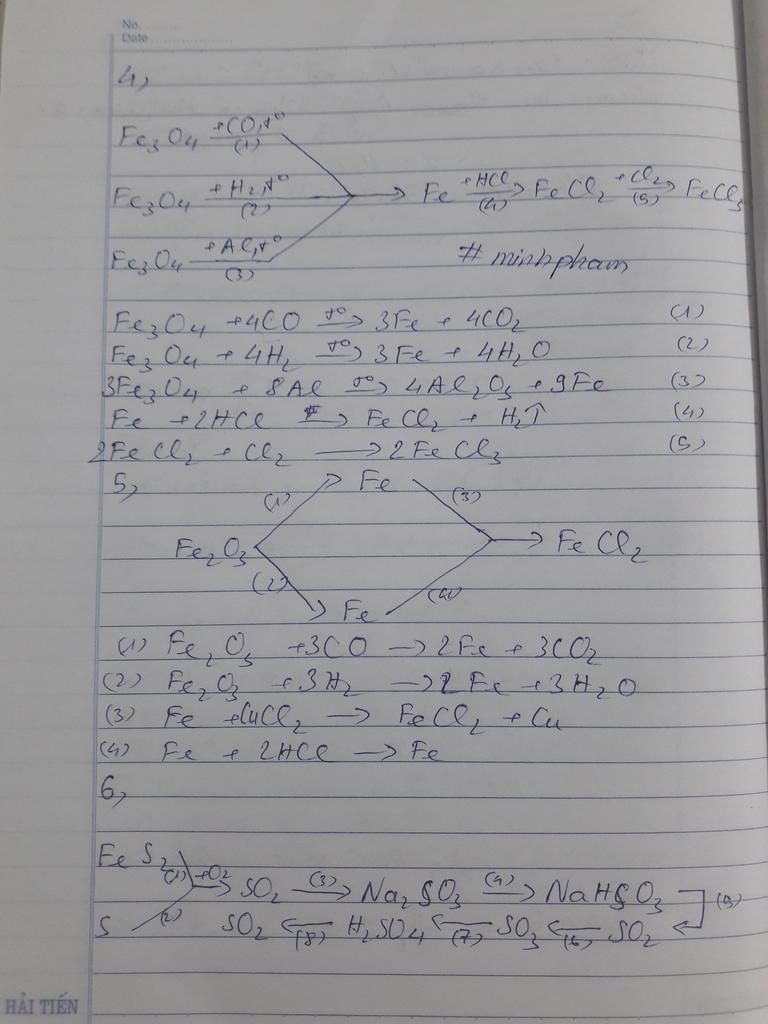 No.
Date
4,
Fe3O4 +CO,t° (1)
Fe3O4 +H2,t° (2) → Fe +HCl (4) → FeCl2 +Cl2 (5) → FeCl3
Fe3O4 +Al,t° (3)
# minhpham
Fe3O4 + 4CO t°→ 3Fe + 4CO2 (1)
Fe3O4 + 4H2 t°→ 3Fe + 4H2O (2)
3Fe3O4 + 8Al t°→ 4Al2O3 + 9Fe (3)
Fe + 2HCl → FeCl2 + H2↑ (4)
2FeCl2 + Cl2 → 2FeCl3 (5)
5,
(1) Fe (3)
Fe2O3 → FeCl2
(2) Fe (4)
(1) Fe2O3 + 3CO → 2Fe + 3CO2
(2) Fe2O3 + 3H2 → 2Fe + 3H2O
(3) Fe + CuCl2 → FeCl2 + Cu
(4) Fe + 2HCl → Fe
6,
FeS2 (1) +O2 → SO2 (3) → Na2SO3 (4) → NaHSO3 (5)
S (2) SO2 ← (8) H2SO4 ← (7) SO3 ← (6) SO2
HẢI TIẾN